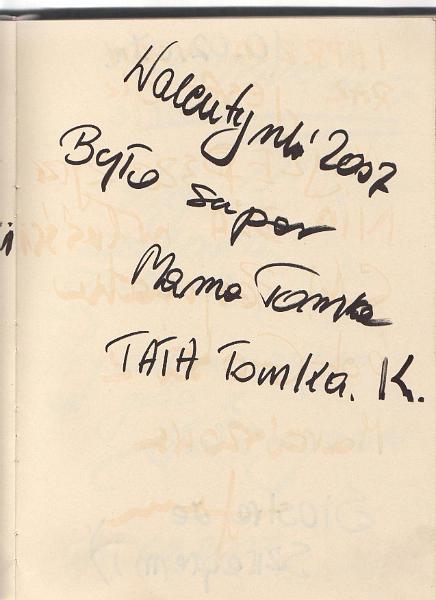 Walentynki 2007
Było super
Mama Tomka
TATA Tomka. K.